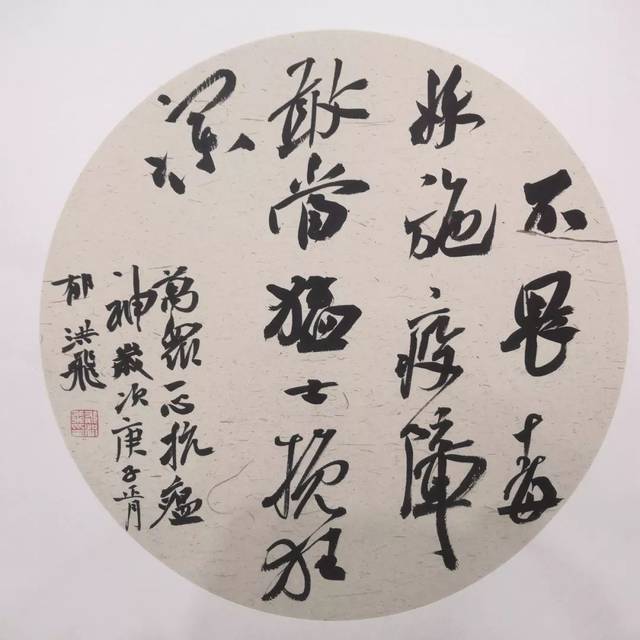 不畏毒
妖施疫障
敢當猛士挽狂
瀾
萬眾一心抗瘟
神歲次庚子正月
郁洪飛